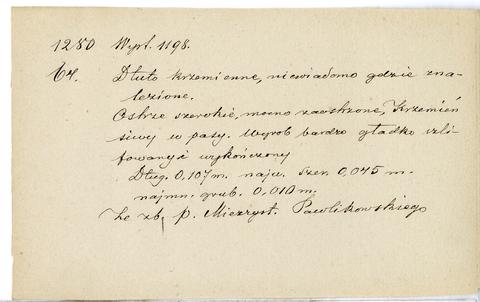 1280 Wypł. 1198.
64. Dłuto krzemienne, niewiadomo gdzie zna-
lezione.
Ostrze szerokie, mocno zaostrzone, Krzemień
siwy w pasy. Wyrób bardzo gładko szli-
fowany i wykończony
Dług. 0,107 m. najw. szer. 0,045 m.
najmn. grub. 0,010 m.
Ze zb. p. Mieczysł. Pawlikowskiego